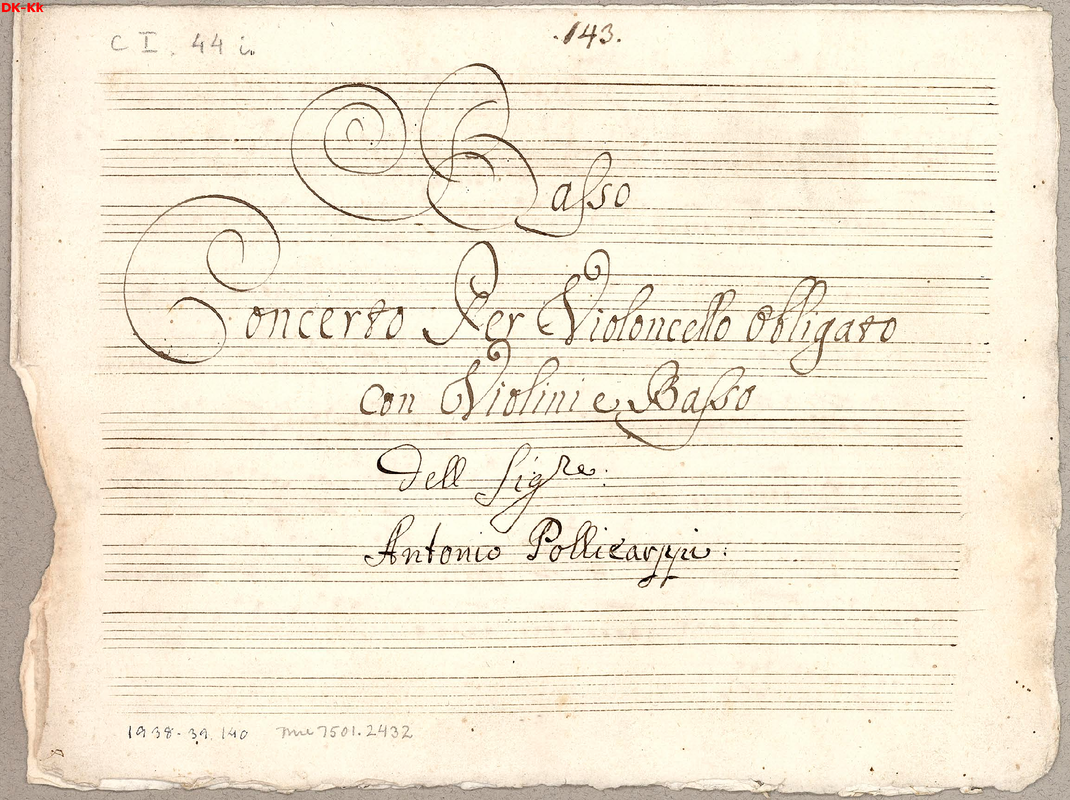 DK-Kk
C I. 44 i.
.143.
Basso
Concerto Per Violoncello Obligato
con Violini e Basso
Dell Sigre:
Antonio Pollicarppi:
1938-39.140 mu 7501.2432